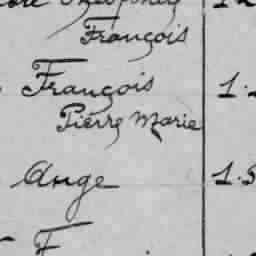 François
François 1.
Pierre Marie
Ange 1.5
F